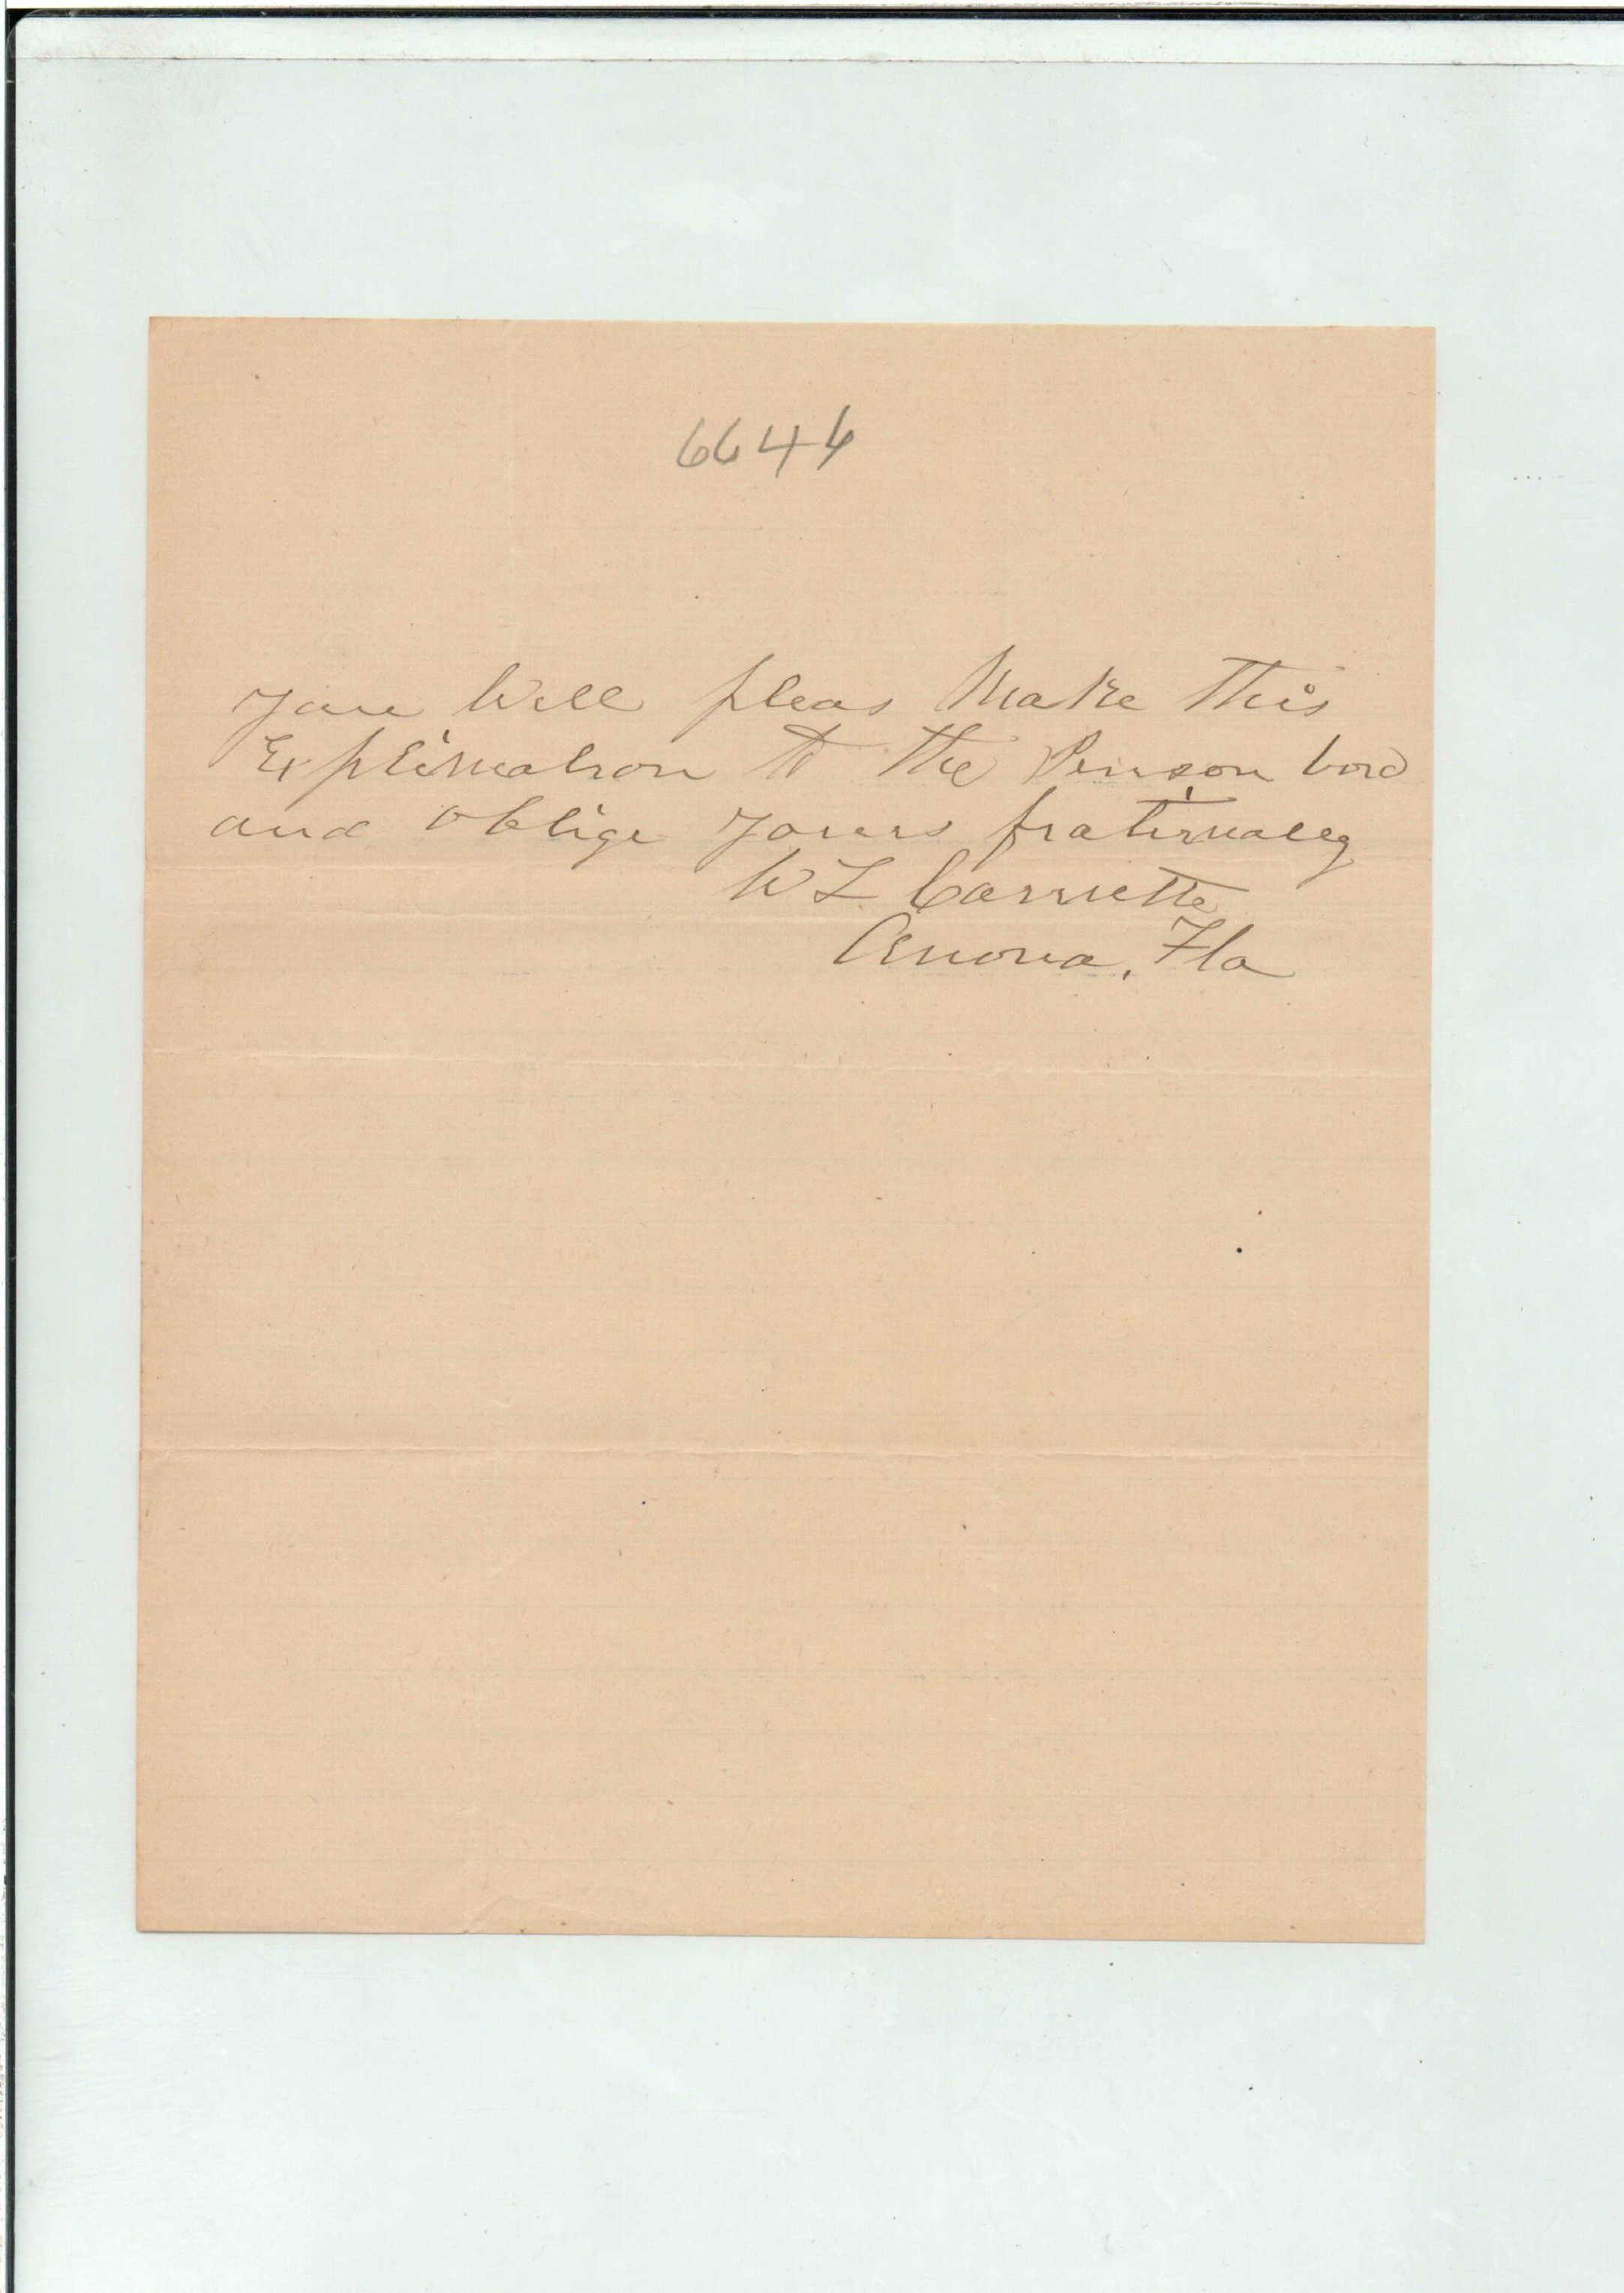 6646
you Will pleas Make This
Explination to the Pinson bord
and oblige yours fraternaly
W L
Anona, Fla